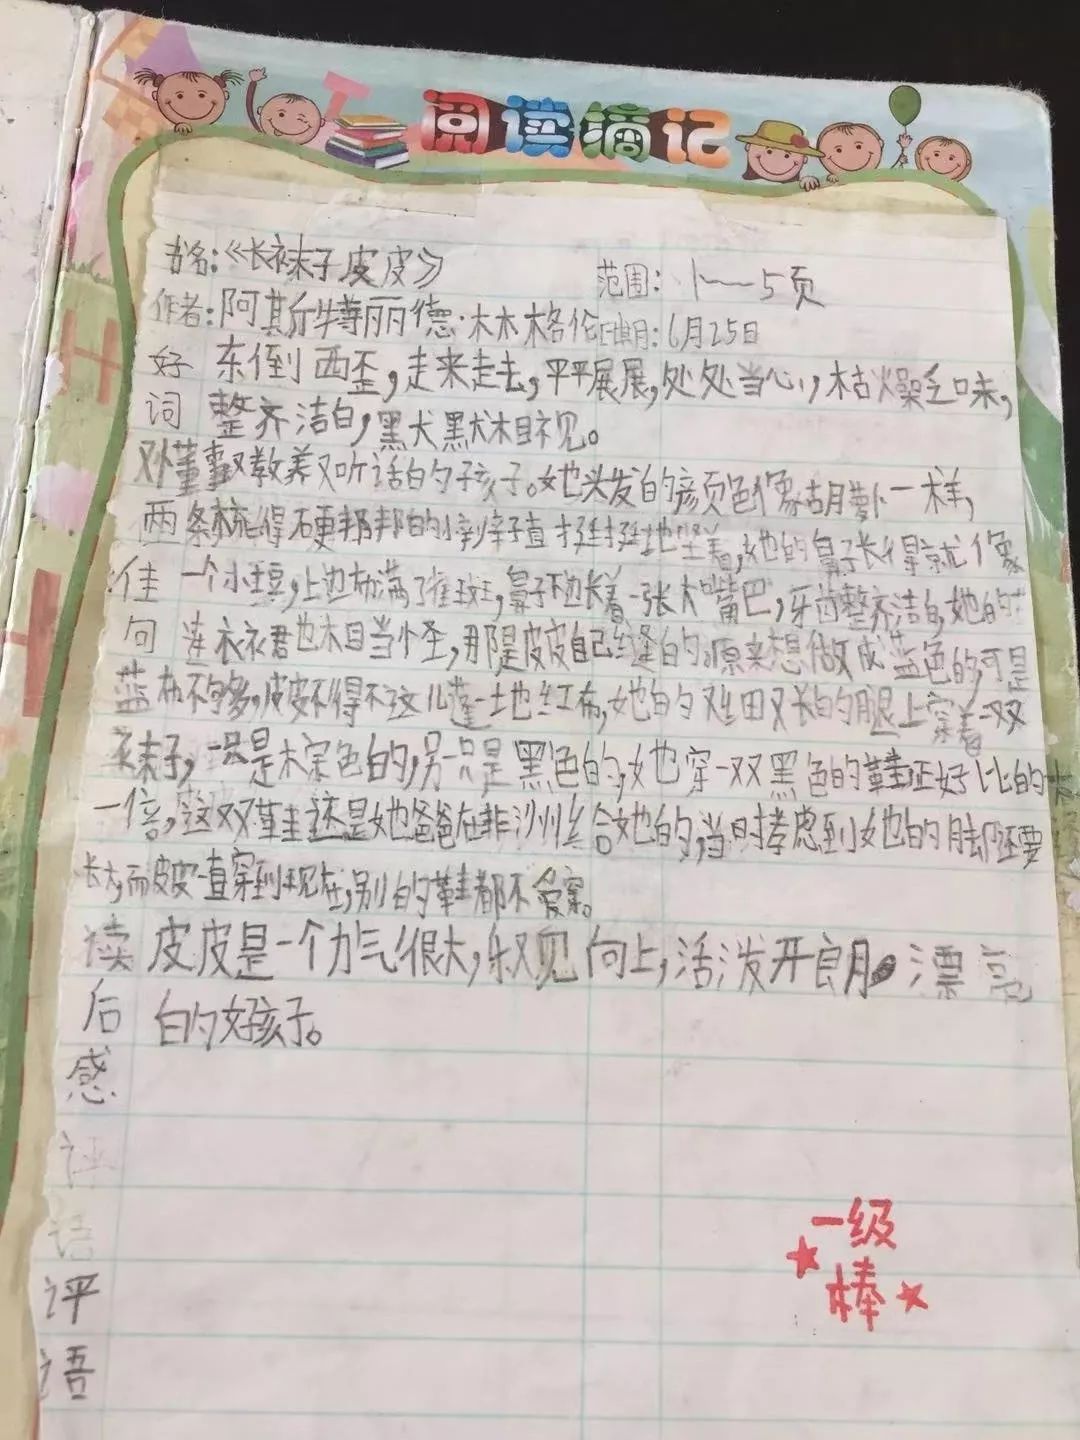 阅读摘记
书名:《长袜子皮皮》 范围: 1——5页
作者:阿斯特丽德·林格伦 日期:6月25日
好 东倒西歪,走来走去,平平展展,处处当心,枯燥乏味,
词 整齐洁白,黑犬默目视。
又懂事又教养又听话的好孩子。她头发的颜色像胡萝卜一样,
两条梳得硬邦邦的小辫子直挺挺地竖着,她的鼻子长得就像
佳 一个小土豆,上边布满了雀斑,鼻子下边长着一张大嘴巴,牙齿整齐洁白,她的
句 连衣裙也相当怪,那是皮皮自己缝的。原来想做成蓝色的,可是
蓝布不够,皮皮不得不这儿缝一块红布,她的又细又长的腿上穿着一双
长袜子,一只是棕色的,另一只是黑色的,她穿一双黑色的鞋正好比的大
一倍,这双鞋还是她爸爸在非洲给她的,当时考虑到她的脚还要
长大,而皮皮一直穿到现在,别的鞋都不爱穿。
读 皮皮是一个力气很大,积极向上,活泼开朗 漂亮
后 的好孩子。
感
评
语
评
语
一级
棒